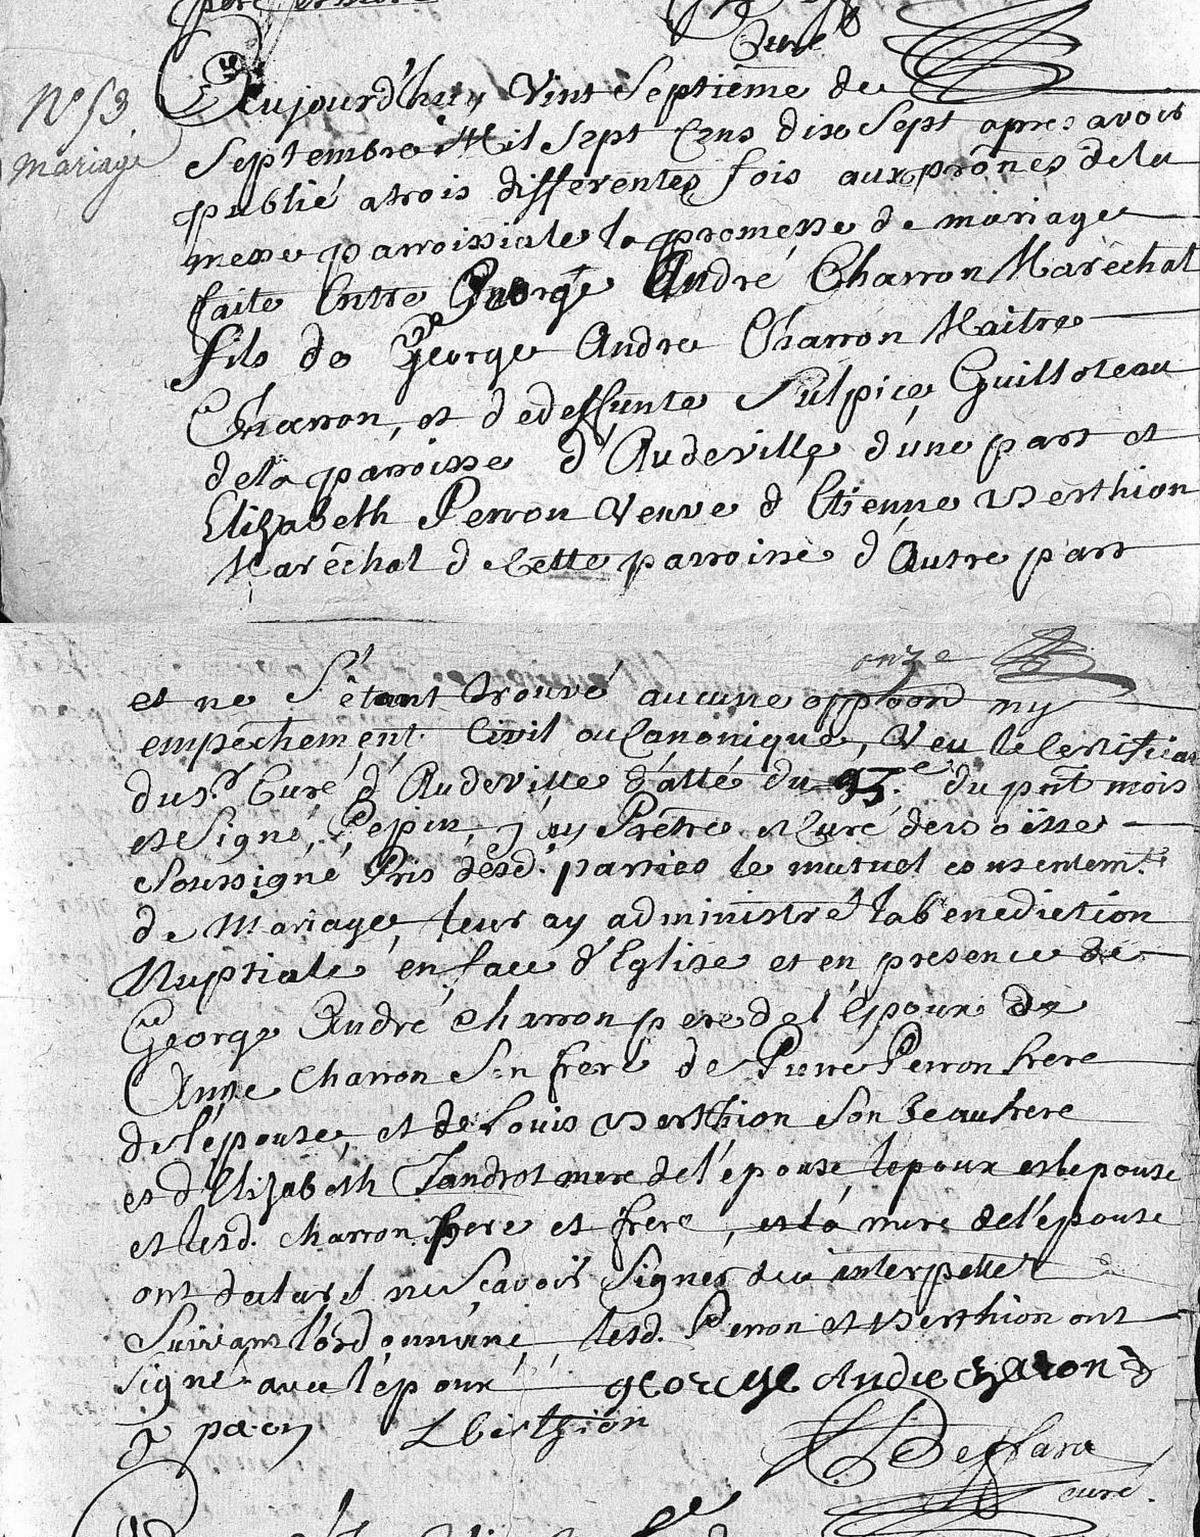 Curé
N° 53.
mariage
Aujourd'huy Vint Septieme de
Septembre Mil Sept Cens dix Sept apres avoir
publié a trois differentes fois aux prônes de la
messe parroissiale la promesse de mariage
faite Entre George André Charron Maréchal
fils de George Andre Charron Maitre
Charron, et de deffunte Sulpice Guilloteau
de la parroisse d'Audeville d'une part et
Elizabeth Perron Veuve d'Etienne Berthion
Maréchal de Cette parroisse d'Autre part
onze
et ne S'étant trouvé aucune opp̃oõn ny
empêchement Civil ou Canonique, Veu le Certificat
du Sr. Curé d'Audeville d'atté du 25e. du pñt mois
et Signé, Pepin, j'ay Prêtre et Curé de
Soussigné Pris desd. parties le mutuel consentemt.
de Mariage, leur ay administré la benediction
Nuptiale en face d'Eglise et en presence de
George André Charron pere de l'époux de
Anne Charron Son frere de Pierre Perron frere
de l'épouse, et de Louis Berthion Son Beaufrere
et d'Elizabeth Jandrot mere de l'épouse, l'epoux et l'epouse
et lesd. Charron pere et frere, et la mere de l'épouse
ont declaré ne Scavoir Signer de ce interpellez
Suivant l'ordonnance, lesd. Perron et Berthion ont
Signé avec l'époux george Andre charon
p paron L berthion
curé.